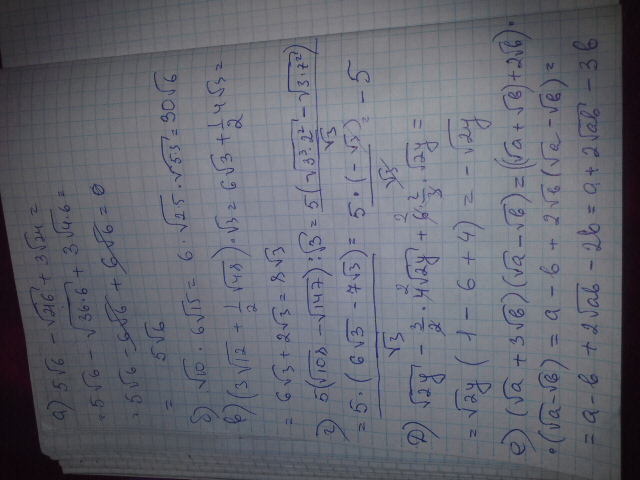 а) 5√6 − √216 + 3√24 =
= 5√6 − √36·6 + 3√4·6 =
= 5√6 − 6√6 + 6√6 = 0
= 5√6
б) √10 · 6√15 = 6 · √25 · √53 = 30√6
в) (3√12 + 1/2 √48) · √3 = 6√3 + 1/2 4√3 =
= 6√3 + 2√3 = 8√3
г) 5(√108 − √147) : √3 = 5(√3³·2² − √3·7²) / √3
= 5 · (6√3 − 7√3) / √3 = 5 · (−√3) / √3 = −5
д) √2y − 3/2 · 4√2y + 6 2/3 · √2y =
= √2y ( 1 − 6 + 4) = −√2y
е) (√a + 3√b)(√a − √b) = ((√a + √b) + 2√b) ·
· (√a − √b) = a − b + 2√b (√a − √b) =
= a − b + 2√ab − 2b = a + 2√ab − 3b